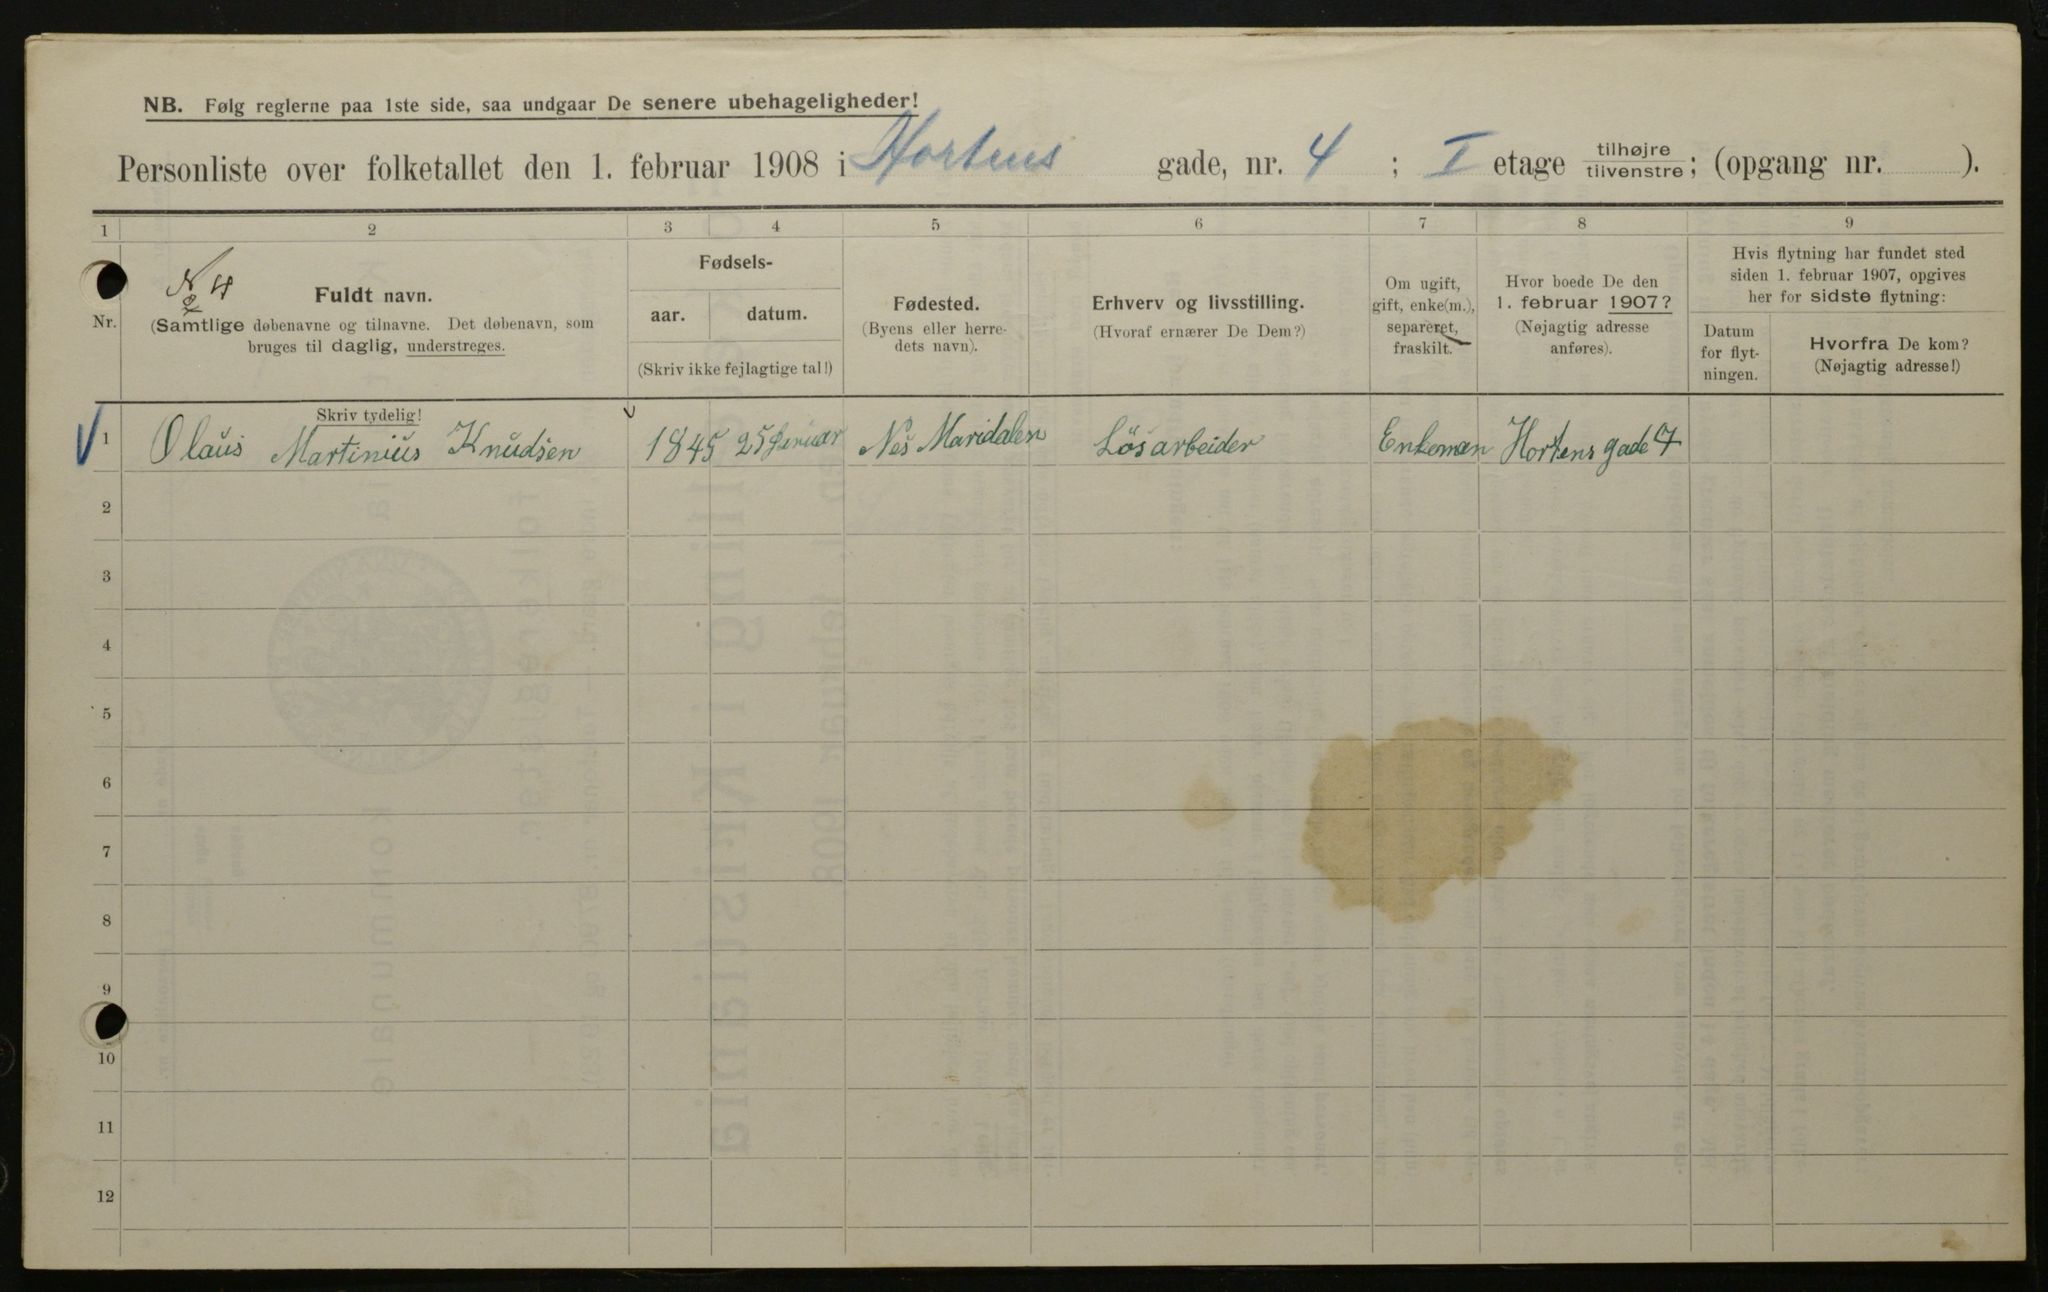 NB. Følg reglerne paa 1ste side, saa undgaar De senere ubehageligheder!
Personliste over folketallet den 1. februar 1908 i Hortens gade, nr. 4 ; I etage tilhøjre/tilvenstre; (opgang nr. ).
1 2 3 4 5 6 7 8 9
Nr.
N 4
Fuldt navn.
(Samtlige døbenavne og tilnavne. Det døbenavn, som
bruges til daglig, understreges.
Fødsels-
aar. datum.
(Skriv ikke fejlagtige tal!)
Fødested.
(Byens eller herre-
dets navn).
Erhverv og livsstilling.
(Hvoraf ernærer De Dem?)
Om ugift,
gift, enke(m.),
separeret,
fraskilt.
Hvor boede De den
1. februar 1907?
(Nøjagtig adresse
anføres).
Hvis flytning har fundet sted
siden 1. februar 1907, opgives
her for sidste flytning:
Datum
for flyt-
ningen.
Hvorfra De kom?
(Nøjagtig adresse!)
Skriv tydelig!
1 Olaus Martinius Knudsen 1845 25 Januar Nes Maridalen Løsarbeider Enkeman Hortens gade 4
2
3
4
5
6
7
8
9
10
11
12